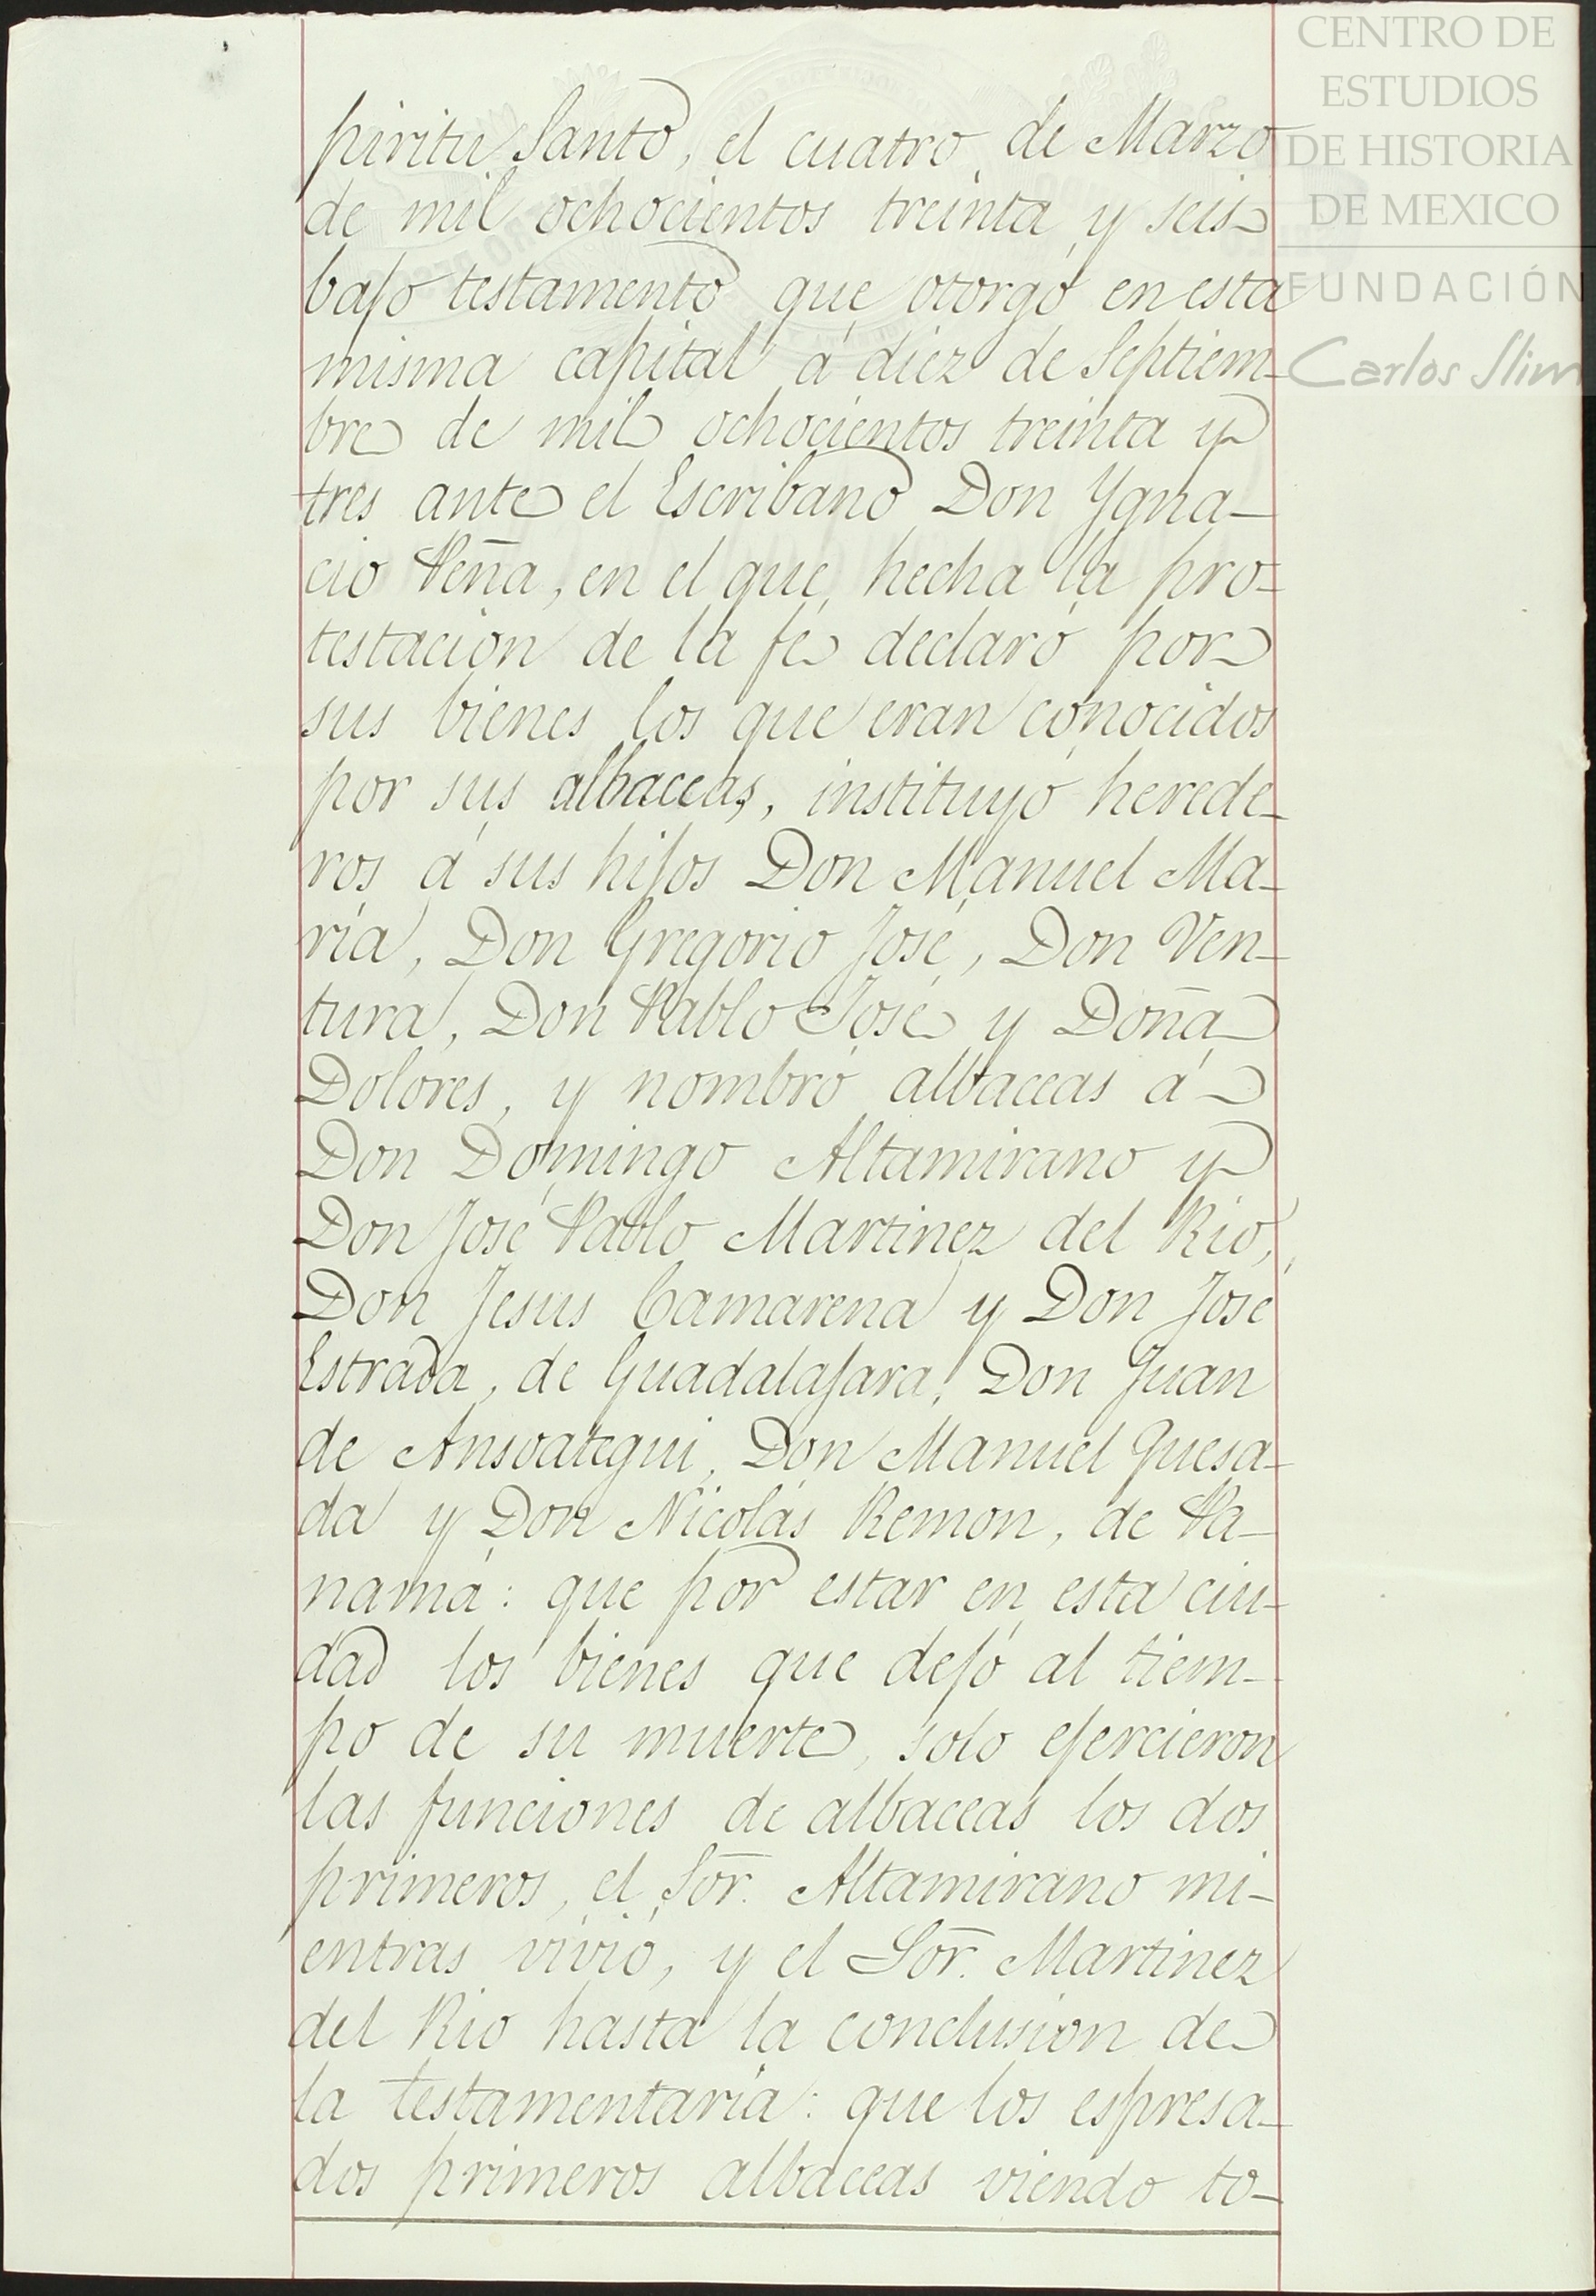 piritu Santo, el cuatro de Marzo
de mil ochocientos treinta y seis
bajo testamento que otorgó en esta
misma capital á diez de Septiem-
bre de mil ochocientos treinta y
tres ante el Escribano Don Ygna-
cio Peña, en el que, hecha la pro-
testacion de la fé declaró por
sus bienes los que eran conocidos
por sus albaceas, instituyó herede-
ros á sus hijos Don Manuel Ma-
ría, Don Gregorio José, Don Ven-
tura, Don Pablo José y Doña
Dolores, y nombró albaceas á
Don Domingo Altamirano y
Don José Pablo Martinez del Rio,
Don Jesus Camarena y Don José
Estrada, de Guadalajara, Don Juan
de Ansoategui, Don Manuel Quesa-
da y Don Nicolás Remon, de Pa-
namá: que por estar en esta ciu-
dad los bienes que dejó al tiem-
po de su muerte, solo ejercieron
las funciones de albaceas los dos
primeros, el Sor. Altamirano mi-
entras vivió, y el Sor. Martinez
del Rio hasta la conclusion de
la testamentaría: que los espresa-
dos primeros albaceas viendo to-
CENTRO DE
ESTUDIOS
DE HISTORIA
DE MEXICO
FUNDACIÓN
Carlos Slim